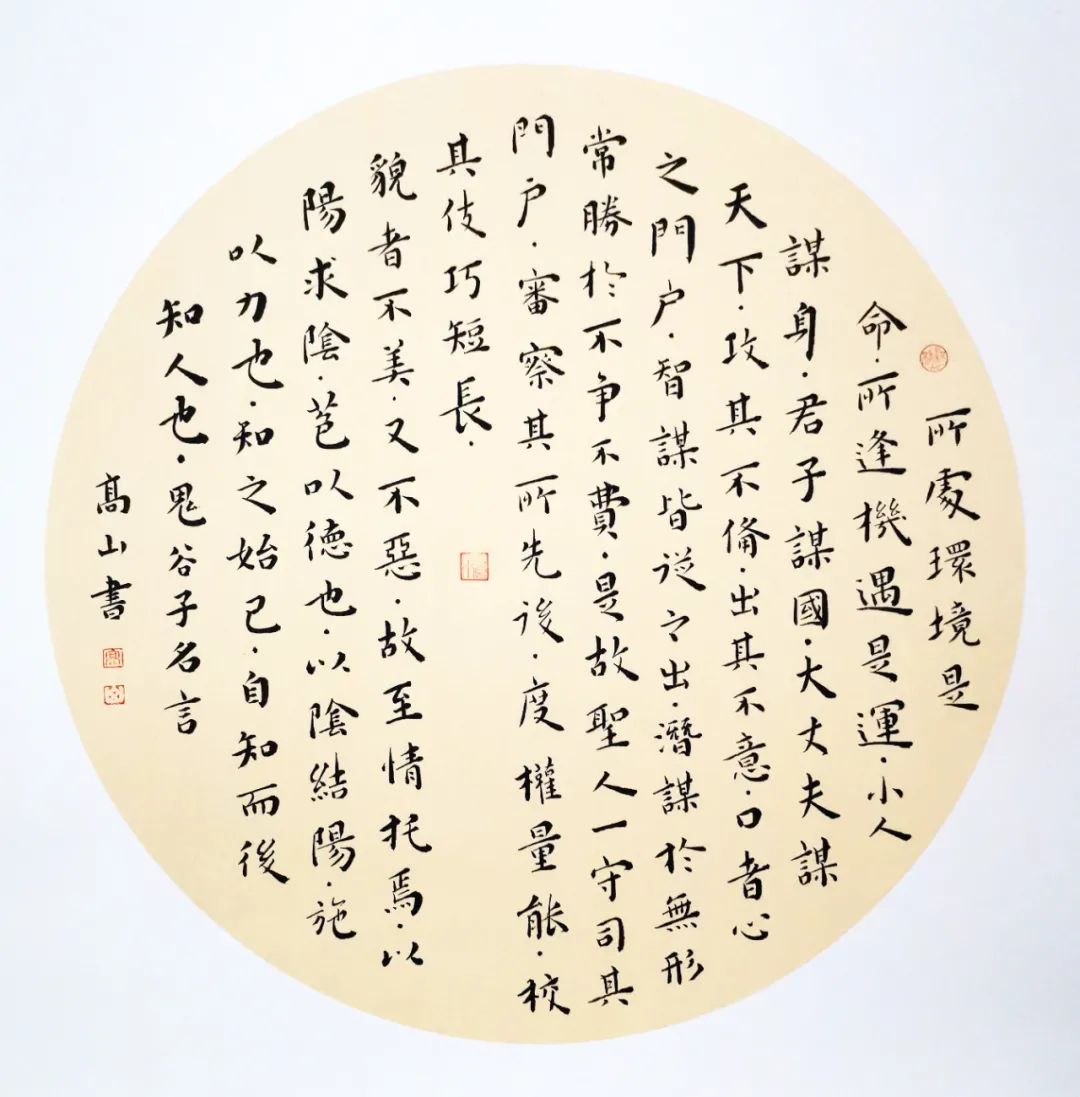 所處環境是
命·所逢機遇是運·小人
謀身·君子謀國·大丈夫謀
天下·攻其不備·出其不意·口者心
之門户·智謀皆從之出·潛謀於無形
常勝於不争不費·是故聖人一守司其
門户·審察其所先後·度權量能·校
其伎巧短長·
貌者不美·又不惡·故至情托焉·以
陽求陰·苞以德也·以陰結陽·施
以力也·知之始己·自知而後
知人也·鬼谷子名言
高山書